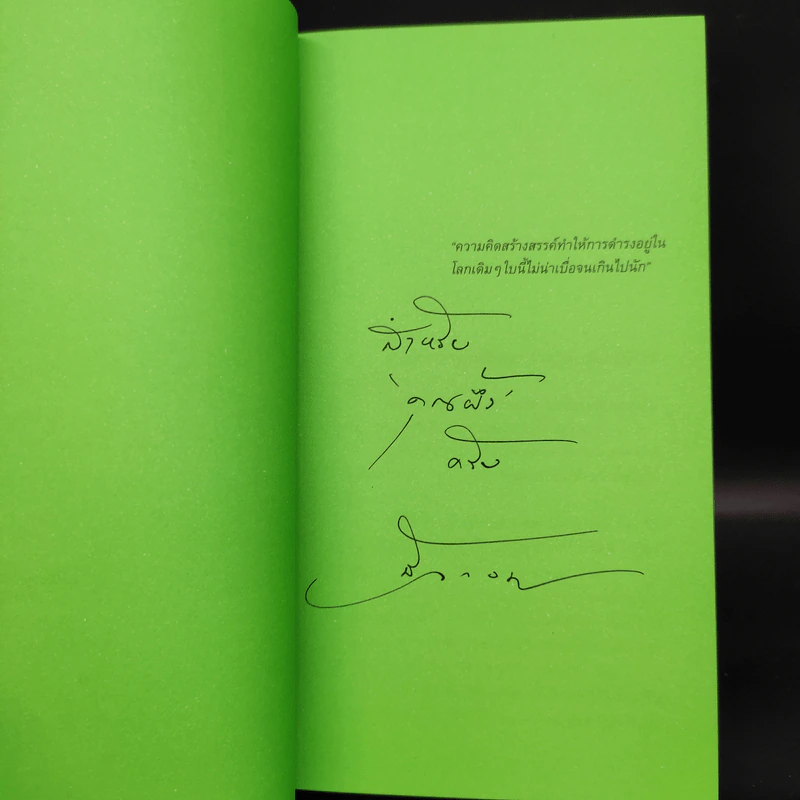 "ความคิดสร้างสรรค์ทำให้การดำรงอยู่ใน
โลกเดิมๆ ใบนี้ไม่น่าเบื่อจนเกินไปนัก"
สำหรับ
'คุณผึ้ง'
ครับ